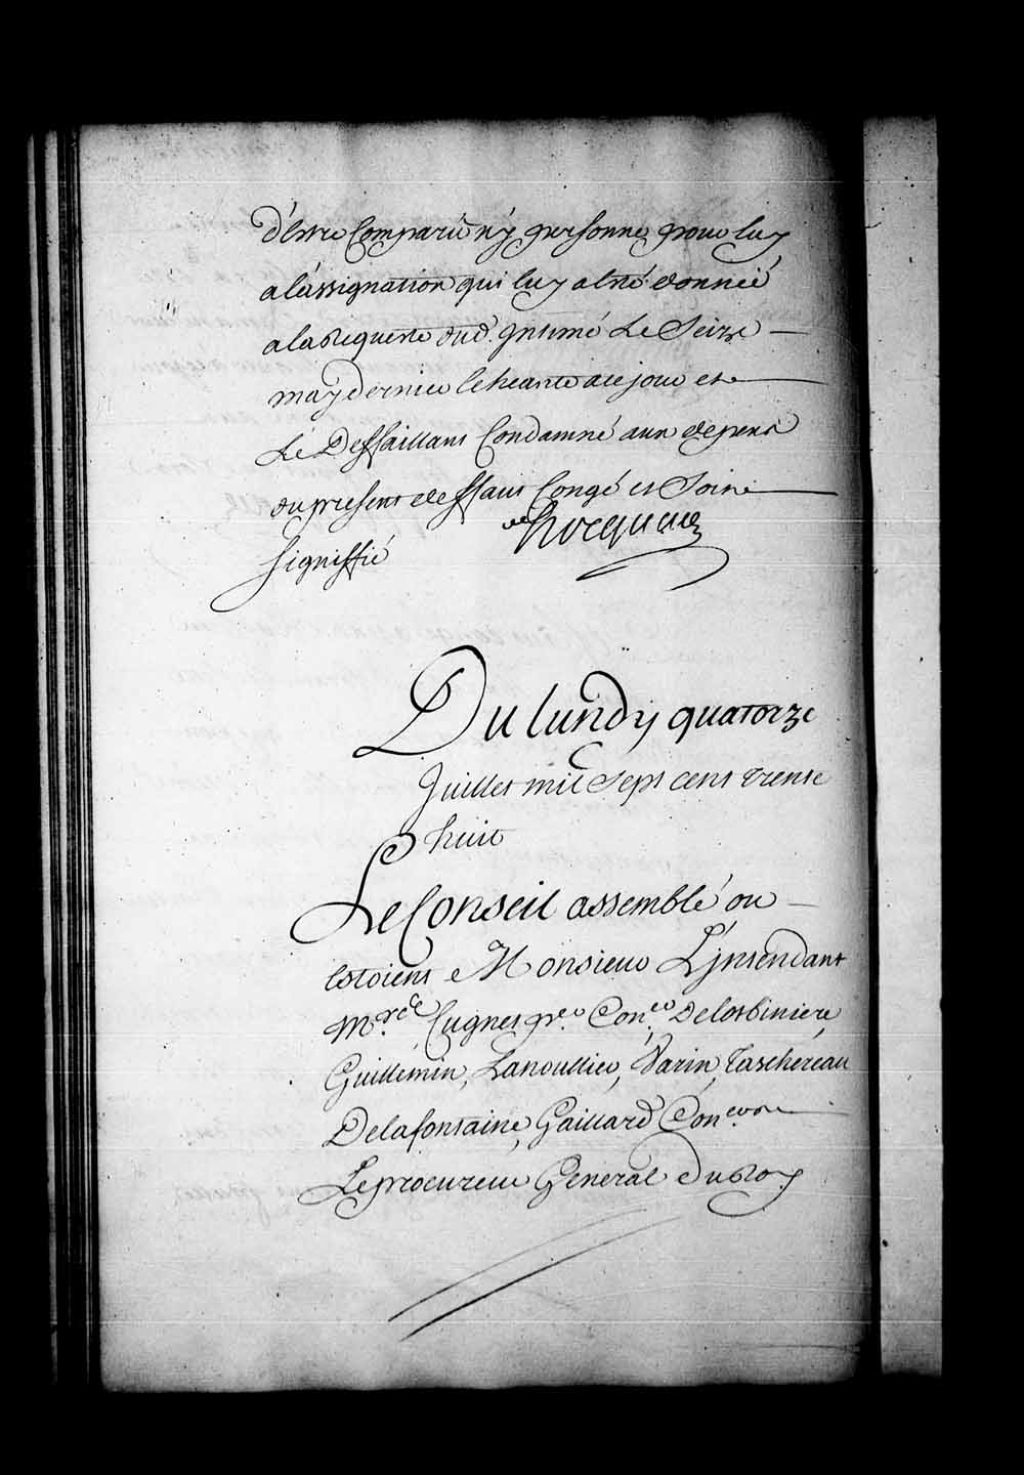 d'Estre Comparu n'y personne pour luy
a l'assignation qui luy a esté donnée
a la Requeste dud. Intimé Le Seize
may dernier lecheante a ce jour et
Le Deffaillant Condamné aux depens
du present deffaut Congé et Soit
signiffié
hocquart
Du lundy quatorze
Juillet mil Sept cent trente
huit
Le Conseil assemblé ou
Estoient Monsieur L'jntendant
Mre. Cugnet pr. Coner. Delotbiniere,
Guillemin, Lanoullier, Varin, Taschereau
Delafontaine, Gaillard Coners.
Le procureur General du Roy